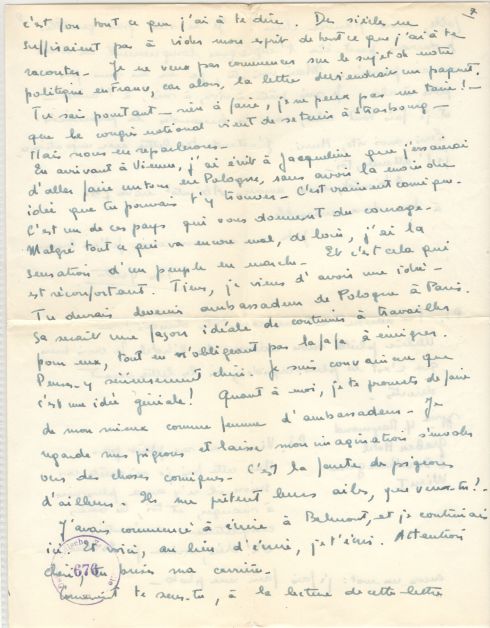 7
c'est fou tout ce que j'ai à te dire. Des siècles ne
suffisaient pas à vider mon esprit de tout ce que j'ai à te
raconter. Je ne veux pas commencer sur le sujet de notre
politique en France, car alors, la lettre deviendrait un paquet.
Tu sais pourtant – rien à faire, je ne peux pas me taire! –
que le congrès national vient de se tenir à Strasbourg –
Mais nous en reparlerons –
En arrivant à Vienne, j'ai écrit à Jacqueline que j'essaierai
d'aller faire un tour en Pologne, sans avoir la moindre
idée que tu pouvais t'y trouver – C'est vraiment comique –
C'est un de ces pays qui vous donnent du courage –
Malgré tout ce qui va encore mal, de loin, j'ai la
sensation d'un peuple en marche – Et c'est cela qui
est réconfortant. Tiens, je viens d'avoir une idée –
Tu devrais devenir ambassadeur de Pologne à Paris.
Ça serait une façon idéale de continuer à travailler
pour eux, tout en n'obligeant pas la à émigrer.
Penses-y sérieusement chéri. Je suis convaincue que
c'est une idée géniale! Quant à moi, je te promets de faire
de mon mieux comme femme d'ambassadeur – Je
regarde mes pigeons et laisse mon imagination s'envoler
vers des choses comiques – C'est la faute des pigeons
d'ailleurs – Ils me prêtent leurs ailes, que veux-tu! –
J'avais commencé à écrire à Belmont, et je continuai
ici. Et voici, au lieu d'écrire, je t'écris. Attention
chéri, tu brises ma carrière –
676
Comment te sens-tu, à la lecture de cette lettre